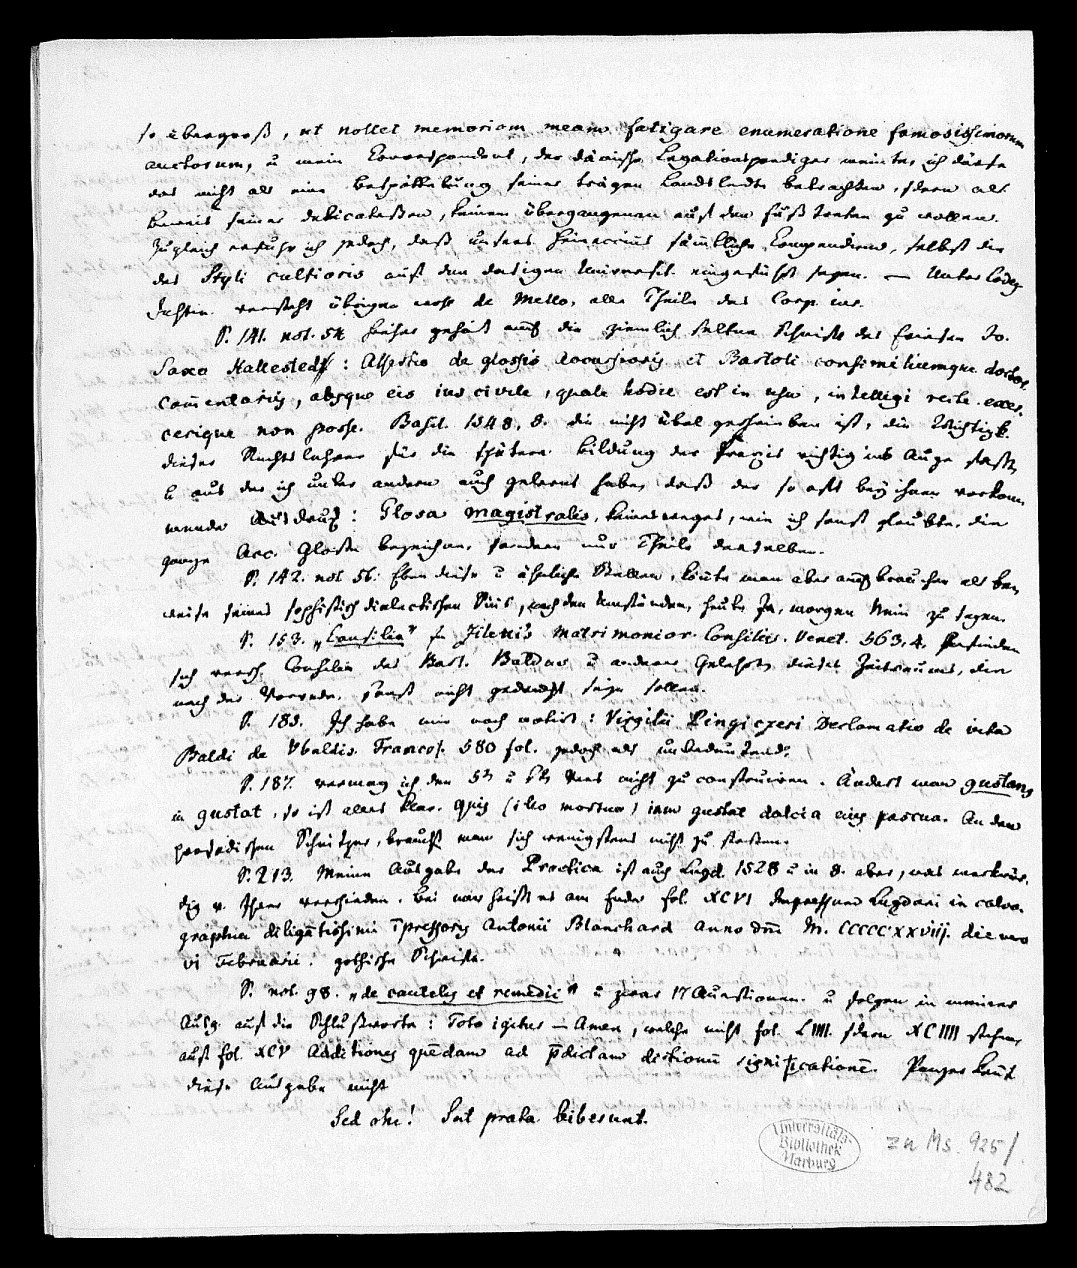 so übergroß, ut nollet memoriam meam fatigare enumeratione famosissimorum
auctorum, u mein Correspondent, der dänische Legationsprediger meinte, ich dürfe
das nicht als eine seiner trägen Landsleute betrachten, sdern als
Beweis seiner delicatessen, keinem übergangenen auf den Fuß treten zu wollen.
Zugleich erfuhr ich jedoch, daß unsers Heineccius sämtliche Compendien, selbst die
des Styli cultioris auf den dortigen Universit. eingeführt seyen. — Unter Codex
Justin. versteht übrigens de Mello, alle Theile des Corp. iur.
P. 141. not. 54 hieher gehört auch die ziemlich seltene Schrift des Jo.
Saxo Hattestedt: Assertio de glossis Accursianis et Bartoli consimiliumque doctor.
com̄entariis, absque eis ius civile, quale hodie est in usu, intelligi recte exer-
cerique non posse. Basil. 1548. 8. die nicht übel geschrieben ist, die Wichtigk.
dieser Rechtslehrer für die spätere Bildung der Praxis richtig ins Auge faßt,
u aus der ich unter andern auch gelernt habe, daß der so oft bey ihnen vorkom̄
mende Ausdruck: Glosa magistralis, keineswegs, wie ich sonst glaubte, die
ganze Acc. Glosse bezeichne, sondern nur Theile derselben.
P. 142. not 56. Eben diese u ähnliche Stellen, könte man aber auch brauchen als Be-
weise seines sophistisch dialectischen Sinns, nach den Umständen, heute Ja, morgen Nein zu sagen.
P. 153. „Consilia" in Zileti's Matrimonior. Consiliis. Venet. 563, 4. befinden
sich versch. Consilia des Bart. Baldus u anderer Gelehrten dieses Zeitraumes, die
nach der Vorrede, sonst nicht gedruckt seyn sollen.
P. 183. Ich habe mir noch notirt: Virgilii Pingiczeri Declamatio de vita
Baldi de Ubaldis. Francof. 580 fol. jedoch als unbedeutend.
P. 187. vermag ich den 5tn u 6tn Vers nicht zu construiren. Aendert man gustans
in gustat, so ist alles klar. Quis (illo mortuo) iam gustat dulcia eius pascua. An dem
prosodischen Schnitzer, braucht man sich wenigstens nicht zu stoßen.
P. 213. Meine Ausgabe der Practica ist auch Lugd. 1528 u in 8. aber, was merkwür-
dig v. Ihrer verschieden. Bei mir heißt es am Ende fol. XCVI Impressum Lugduni in calco-
graphia diligētissimi īpressoris Antonii Blanchard anno dn̄i M. CCCCCXXVIIJ. die vero
VI Februarii. gothische Schrift.
P. not. 98. „de cautelis et remediis" u zwar 17 Quaestionen. u folgen in meiner
Ausg. auf die Schlußworte: Toto igitur — Amen, welche nicht fol. LIIII sdern XCIIII stehen,
auf fol. XCV Additiones quēdam ad p̄dictam doctionū significationē. Panzer kent
diese Ausgabe nicht
Sed ohe! Sat prata biberunt.
Universitäts-
Bibliothek
Marburg
zu Ms. 925/
482